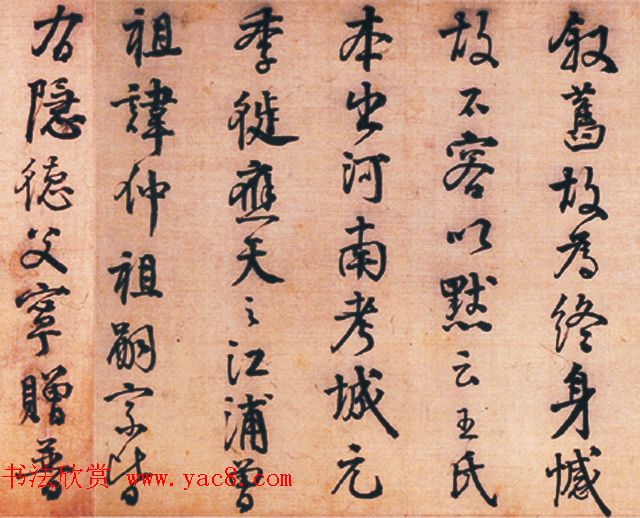 叙舊故为終身憾
故不容以黙云王氏
本出河南考城元
季徙應天之江浦曾
祖諱仲祖嗣宗皆
有隱德父寧贈普
书法欣赏 www.yac8.com